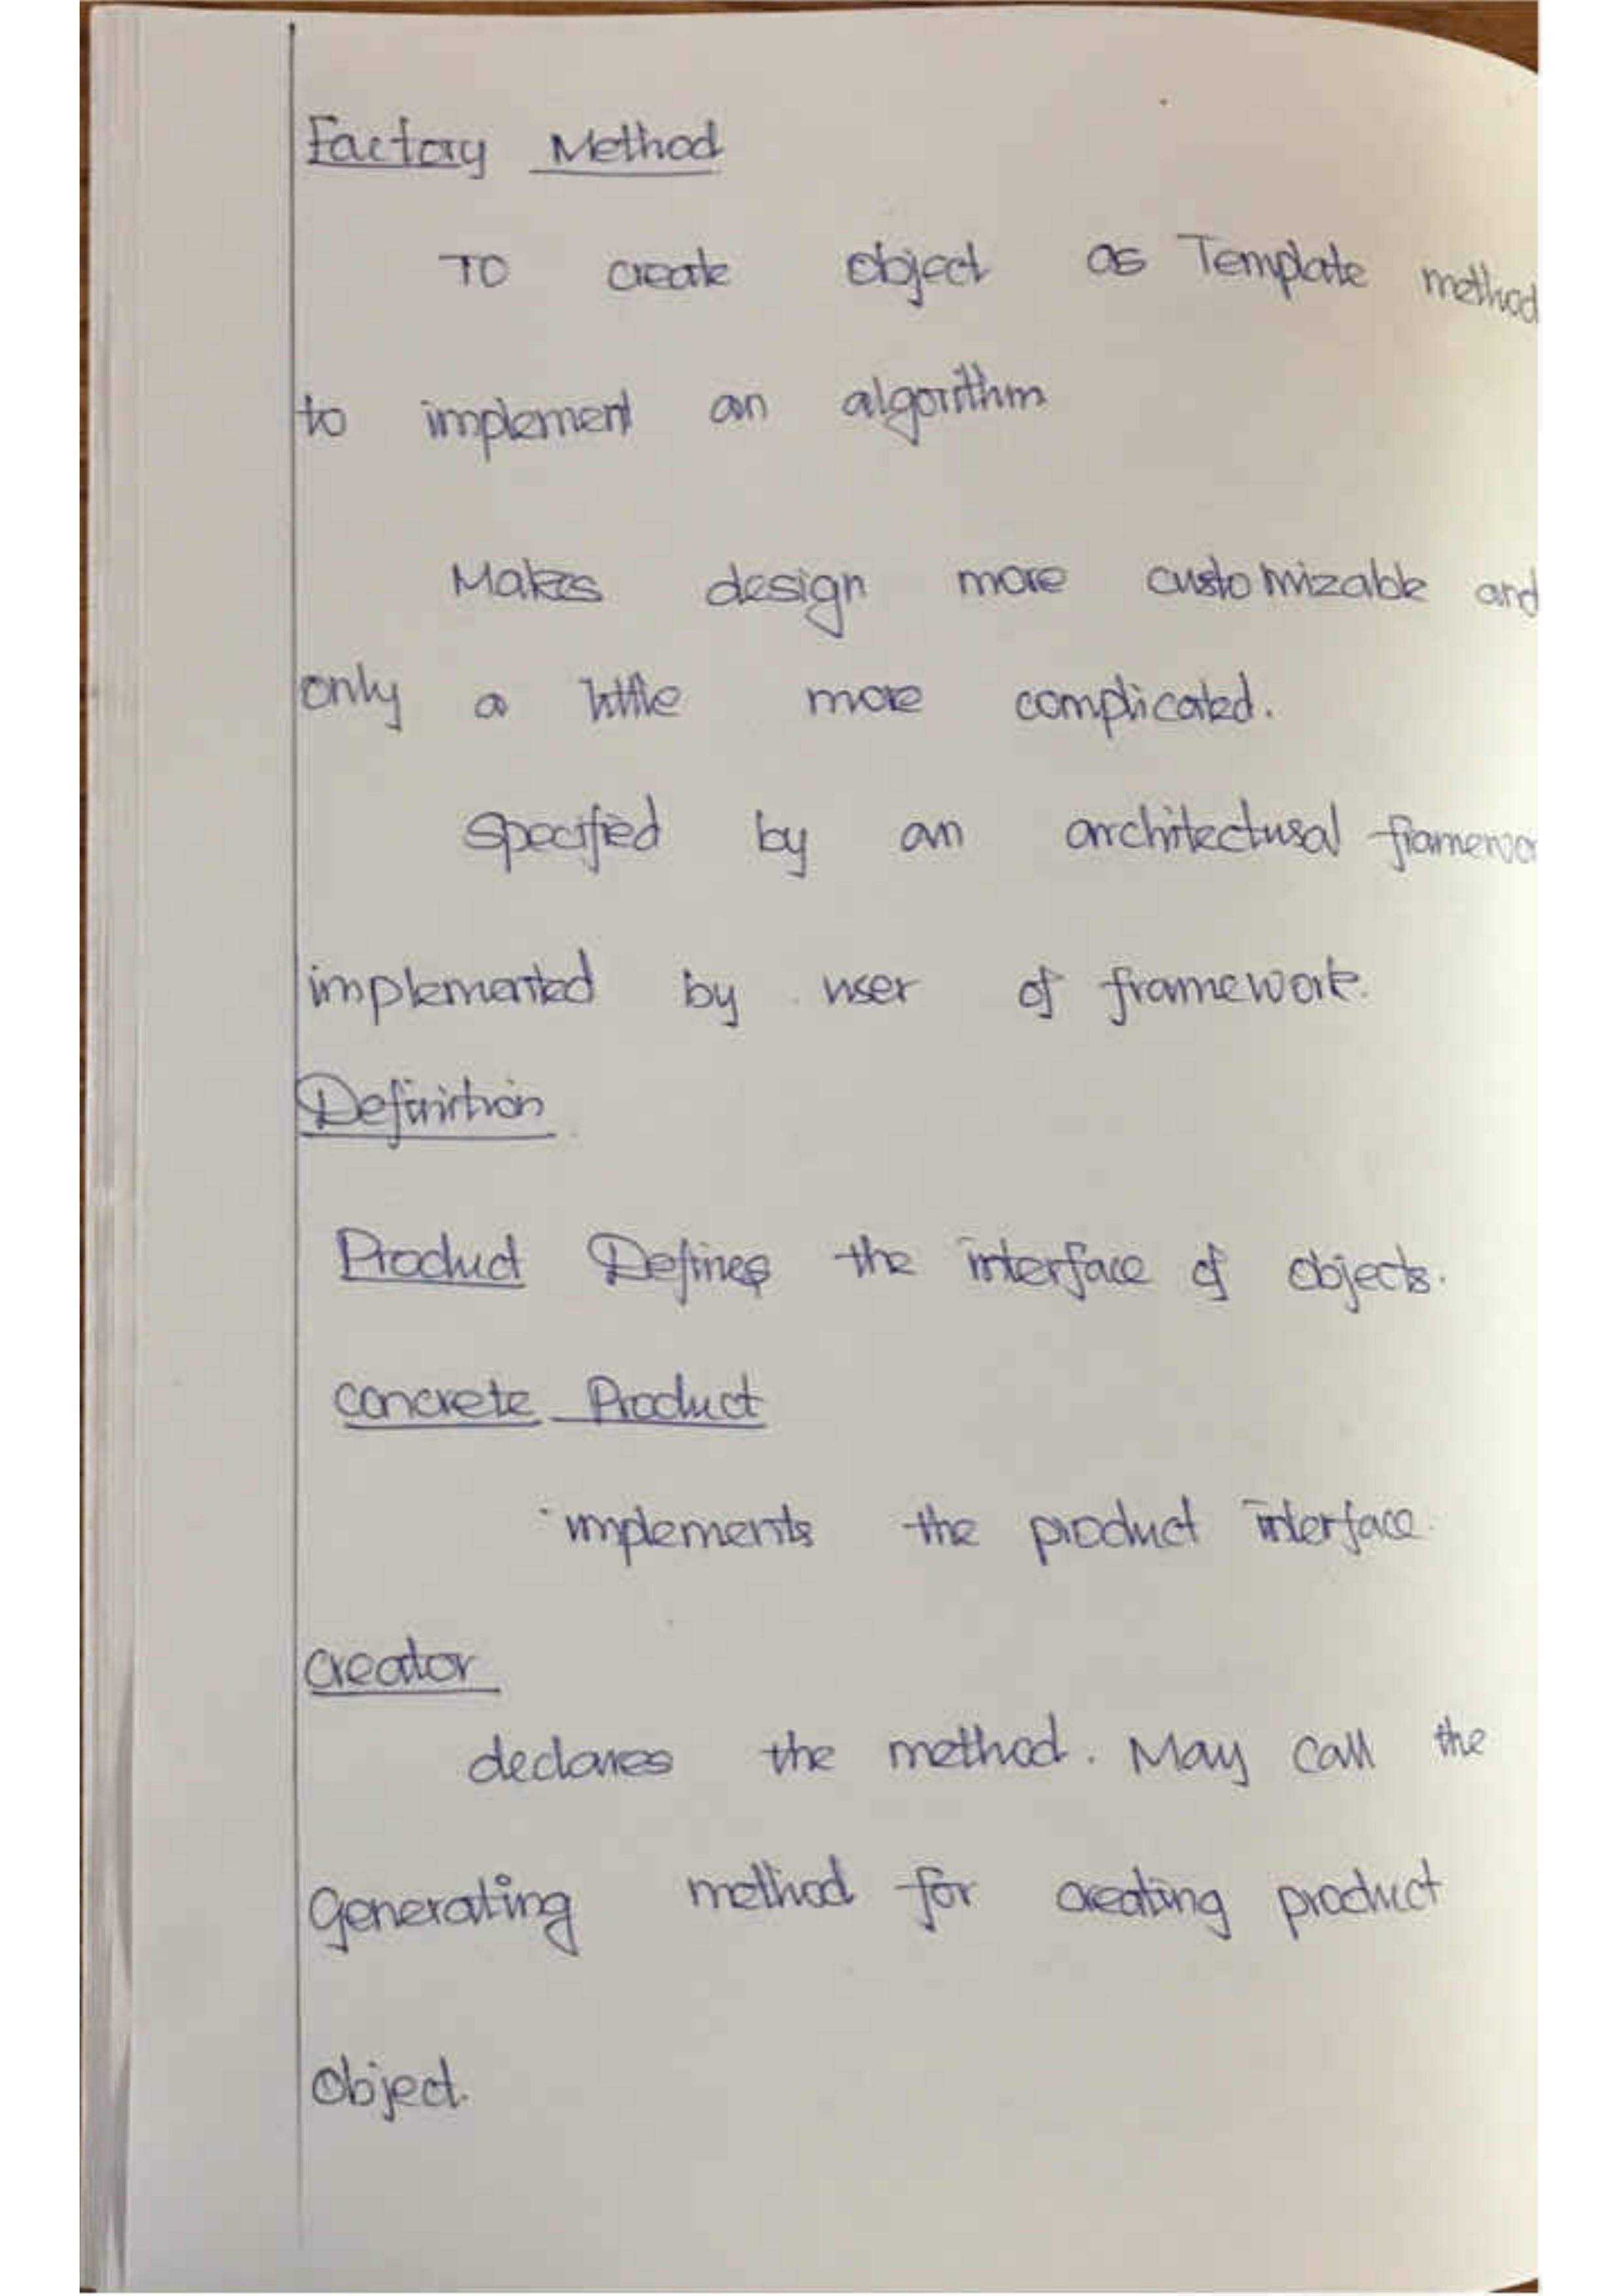 Factory Method
TO create object as Template method
to implement an algorithm
Makes design more customizable and
only a little more complicated.
Specified by an architectusal framewor
implemented by user of framework.
Definition
Product Defines the interface of objects.
concrete Product
implements the product interface.
creator
declares the method. May call the
Generating method for creating product
Object.